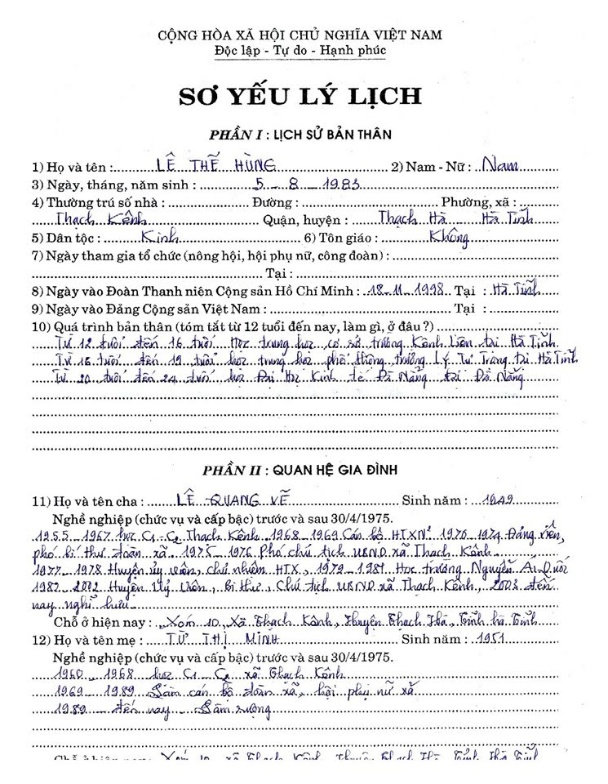 CỘNG HÒA XÃ HỘI CHỦ NGHĨA VIỆT NAM
Độc lập - Tự do - Hạnh phúc
SƠ YẾU LÝ LỊCH
PHẦN I : LỊCH SỬ BẢN THÂN
1) Họ và tên : LÊ THẾ HÙNG 2) Nam - Nữ : Nam
3) Ngày, tháng, năm sinh : 5 - 8 - 1983
4) Thường trú số nhà : Đường : Phường, xã :
Thạch Kênh Quận, huyện : Thạch Hà Hà Tĩnh
5) Dân tộc : Kinh 6) Tôn giáo : Không
7) Ngày tham gia tổ chức (nông hội, hội phụ nữ, công đoàn) :
Tại :
8) Ngày vào Đoàn Thanh niên Cộng sản Hồ Chí Minh : 18-11-1998 Tại : Hà Tĩnh
9) Ngày vào Đảng Cộng sản Việt Nam : Tại :
10) Quá trình bản thân (tóm tắt từ 12 tuổi đến nay, làm gì, ở đâu ?)
Từ 12 tuổi đến 16 tuổi học trung học cơ sở trường Kênh Liên tại Hà Tĩnh
Từ 16 tuổi đến 19 tuổi học trung học phổ thông trường Lý Tự Trọng tại Hà Tĩnh
Từ 20 tuổi đến 24 tuổi học Đại học Kinh tế Đà Nẵng tại Đà Nẵng
PHẦN II : QUAN HỆ GIA ĐÌNH
11) Họ và tên cha : LÊ QUANG VẼ Sinh năm : 1949
Nghề nghiệp (chức vụ và cấp bậc) trước và sau 30/4/1975.
1955 1967 học C1-C2 Thạch Kênh 1968 1969 Cán bộ HTXN 1970 1974 Đảng viên,
phó bí thư đoàn xã 1975 1976 Phó chủ tịch UBND xã Thạch Kênh
1977 1978 Huyện ủy viên, chủ nhiệm HTX, 1979 1981 Học trường Nguyễn Ái Quốc
1982 2002 Huyện Uỷ Viên, Bí thư, Chủ tịch UBND xã Thạch Kênh, 2003 đến
nay nghỉ hưu
Chỗ ở hiện nay : Xóm 10 Xã Thạch Kênh, Huyện Thạch Hà, Tỉnh Hà Tĩnh
12) Họ và tên mẹ : TỪ THỊ MINH Sinh năm : 1951
Nghề nghiệp (chức vụ và cấp bậc) trước và sau 30/4/1975.
1960 1968 học C1 C2 xã Thạch Kênh
1969 1989 Làm cán bộ đoàn xã, hội phụ nữ xã
1989 đến nay Làm ruộng
Chỗ ở hiện nay Xóm 10 xã Thạch Kênh, Huyện Thạch Hà Tỉnh Hà Tĩnh